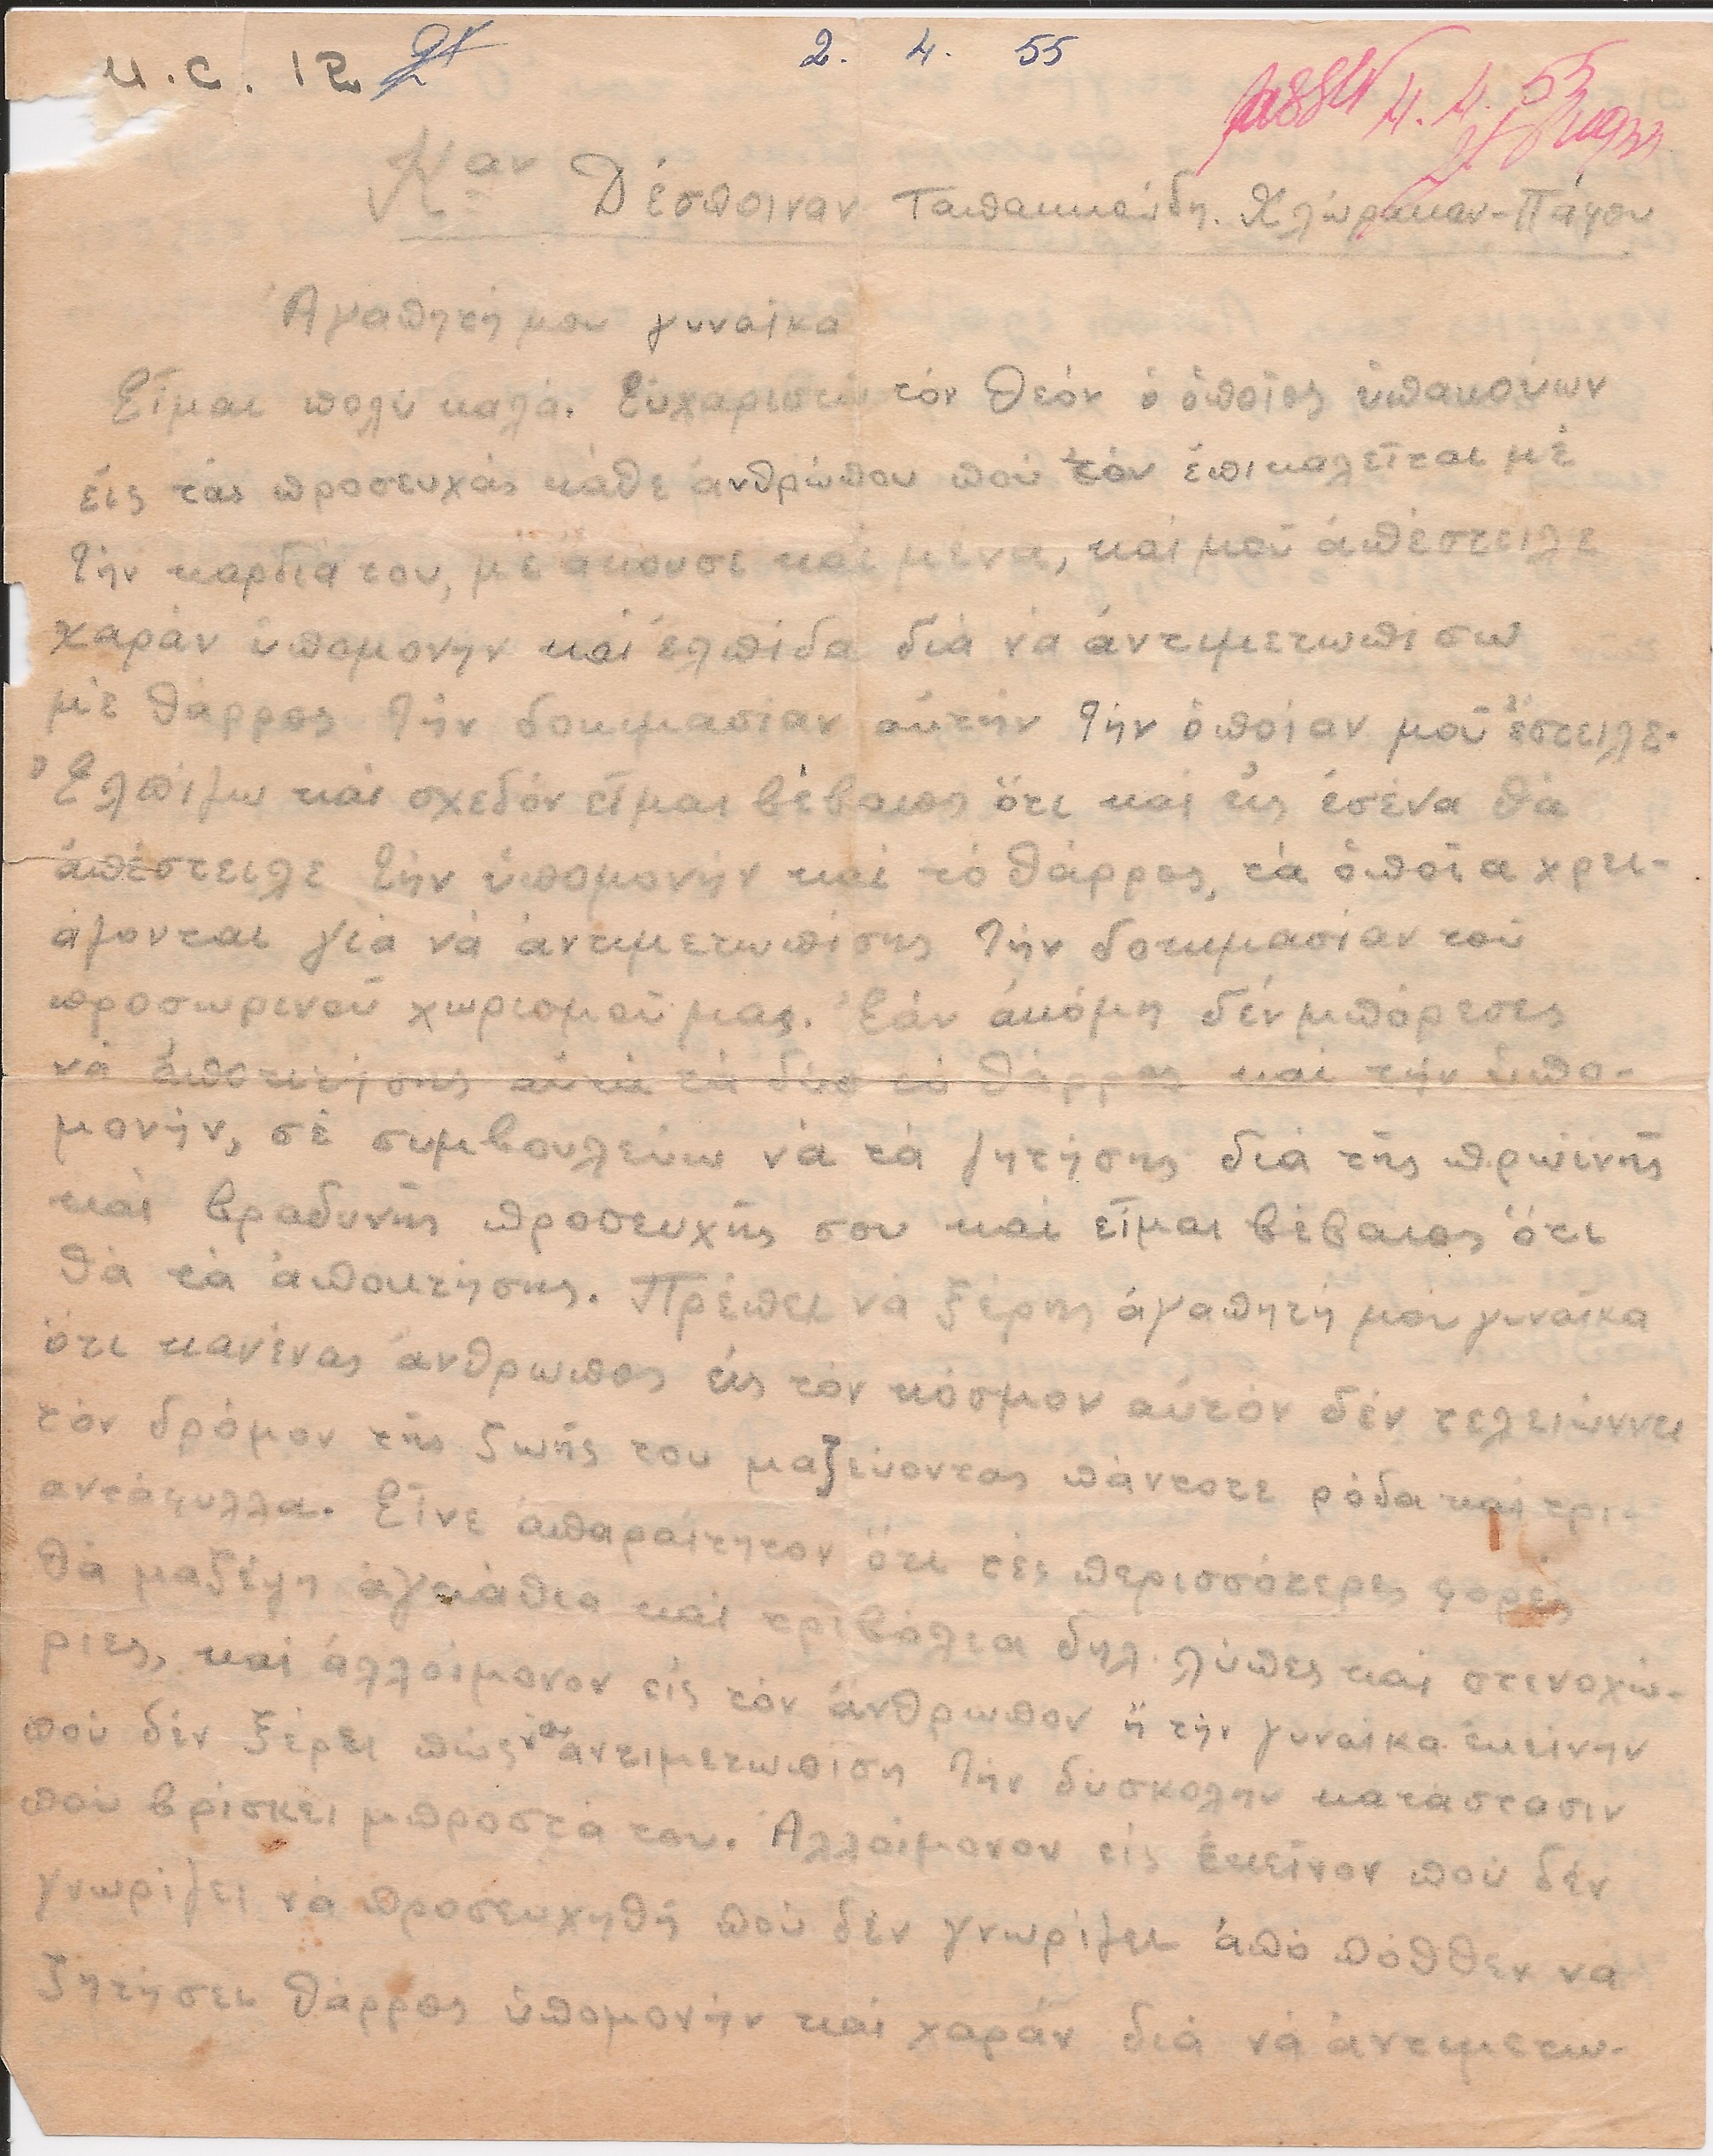 U.C. 12
2. 4. 55
4. 4. 55
Καν Δέσποιναν Ταπακκούδη. Χλώρακαν-Πάφου
Ἀγαπητή μου γυναίκα
Εἶμαι πολύ καλά. Εὐχαριστῶ τόν Θεόν ὁ ὁποῖος ὑπακούων
εἰς τάς προσευχάς κάθε ἀνθρώπου πού τόν ἐπικαλεῖται μέ
τήν καρδιά του, μέ ἄκουσε καί μένα, καί μοῦ ἀπέστειλε
χαράν ὑπομονήν καί ἐλπίδα διά νά ἀντιμετωπίσω
μέ θάρρος τήν δοκιμασίαν αὐτήν τήν ὁποίαν μοῦ ἔστειλε.
Ἐλπίζω καί σχεδόν εἶμαι βέβαιος ὅτι καί εἰς ἐσένα θά
ἀπέστειλε τήν ὑπομονήν καί τό θάρρος, τά ὁποῖα χρει-
άζονται γιά νά ἀντιμετωπίσης τήν δοκιμασίαν τοῦ
προσωρινοῦ χωρισμοῦ μας. Ἐάν ἀκόμη δέν μπόρεσες
νά ἀποκτήσης αὐτά τά δύο τό θάρρος καί τήν ὑπο-
μονήν, σέ συμβουλεύω νά τά ζητήσης διά τῆς πρωϊνῆς
καί βραδυνῆς προσευχῆς σου καί εἶμαι βέβαιος ὅτι
θά τά ἀποκτήσης. Πρέπει νά ξέρης ἀγαπητή μου γυναίκα
ὅτι κανένας ἄνθρωπος εἰς τόν κόσμον αὐτόν δέν τελειώννει
τόν δρόμον τῆς ζωῆς του μαζεύοντας πάντοτε ρόδα καί τρι-
αντάφυλλα. Εἶνε ἀπαραίτητον ὅτι τές περισσότερες φορές
θά μαζέψη ἀγκάθια καί τριβόλια δηλ. λύπες καί στενοχώ-
ριες, καί ἀλλοίμονον εἰς τόν ἄνθρωπον ἤ τήν γυναίκα ἐκείνην
πού δέν ξέρει πῶς νά ἀντιμετωπίση τήν δύσκολην κατάστασιν
πού βρίσκει μπροστά του. Ἀλλοίμονον εἰς ἐκεῖνον πού δέν
γνωρίζει νά προσευχηθῆ πού δέν γνωρίζει ἀπό πόθθεν νά
ζητήσει θάρρος ὑπομονήν καί χαράν διά νά ἀντιμετω-